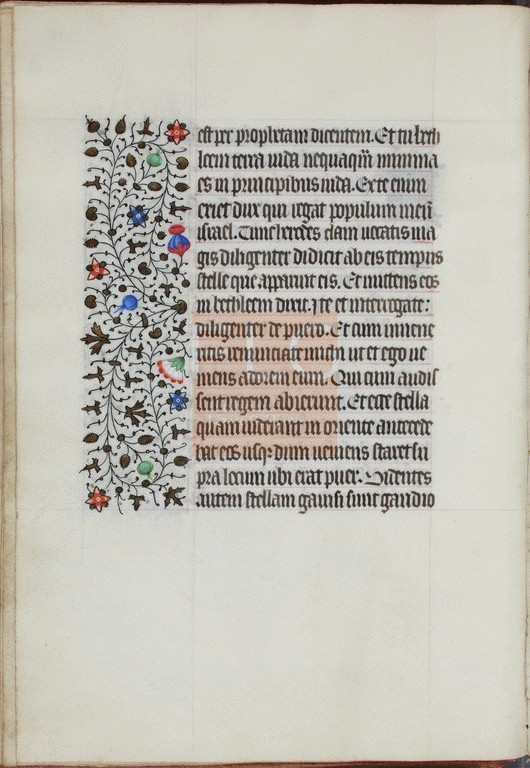 est per prophetam dicentem. Et tu beth
leem terra iuda nequaqm̄ minima
es in principibus iuda. Ex te enim
exiet dux qui regat populum meū
israel. Tunc herodes clam uocatis ma
gis diligenter didicit ab eis tempus
stelle que apparuit eis. Et mittens eos
in bethleem dixit. Ite et interrogate:
diligenter de puero. Et cum inuene
ritis renunciate michi ut et ego ue
niens adorem eum. Qui cum audis
sent regem abierunt. Et ecce stella
quam uiderant in oriente antecede
bat eos usq; dum ueniens staret su
pra locum ubi erat puer. Uidentes
autem stellam gauisi sunt gaudio